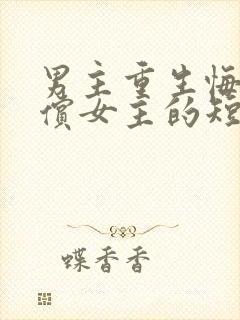 男主重生悔
償女主的短
蝶香香